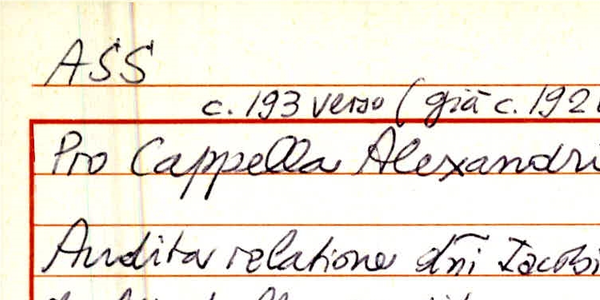 ASS
c. 193 verso (già c. 192
Pro Cappella Alexandri
Audita relatione dñi Iacobi